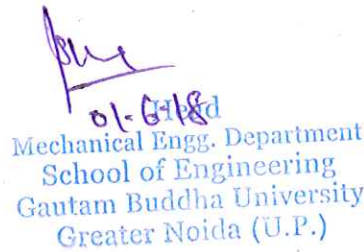 01-6-18
Head
Mechanical Engg. Department
School of Engineering
Gautam Buddha University
Greater Noida (U.P.)